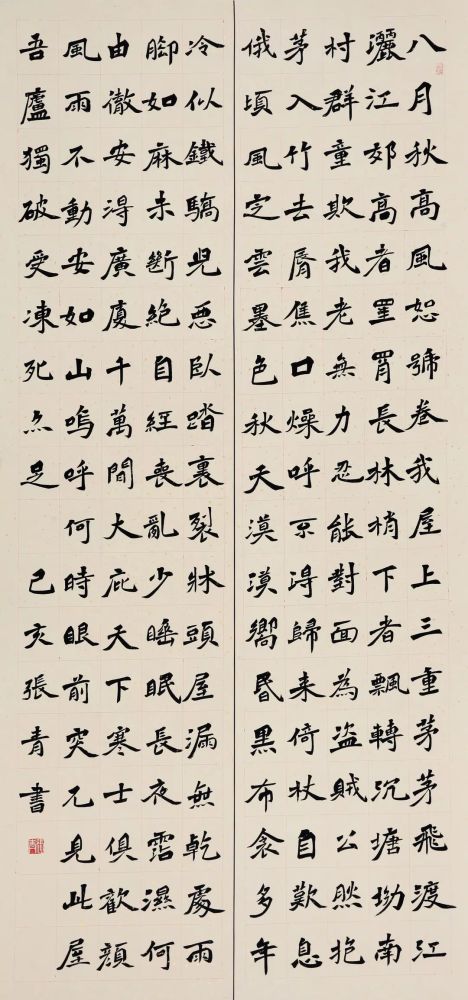 八月秋高風怒號卷我屋上三重茅茅飛渡江
灑江郊高者罣罥長林梢下者飄轉沉塘坳南
村群童欺我老無力忍能對面為盜賊公然抱
茅入竹去脣焦口燥呼不得歸来倚杖自歎息
俄頃風定雲墨色秋天漠漠嚮昏黑布衾多年
冷似鐵驕兒惡臥踏裏裂牀頭屋漏無乾處雨
脚如麻未斷絕自經喪亂少睡眠長夜霑濕何
由徹安得廣廈千萬間大庇天下寒士俱歡顏
風雨不動安如山嗚呼何時眼前突兀見此屋
吾廬獨破受凍死亦足 己亥張青書